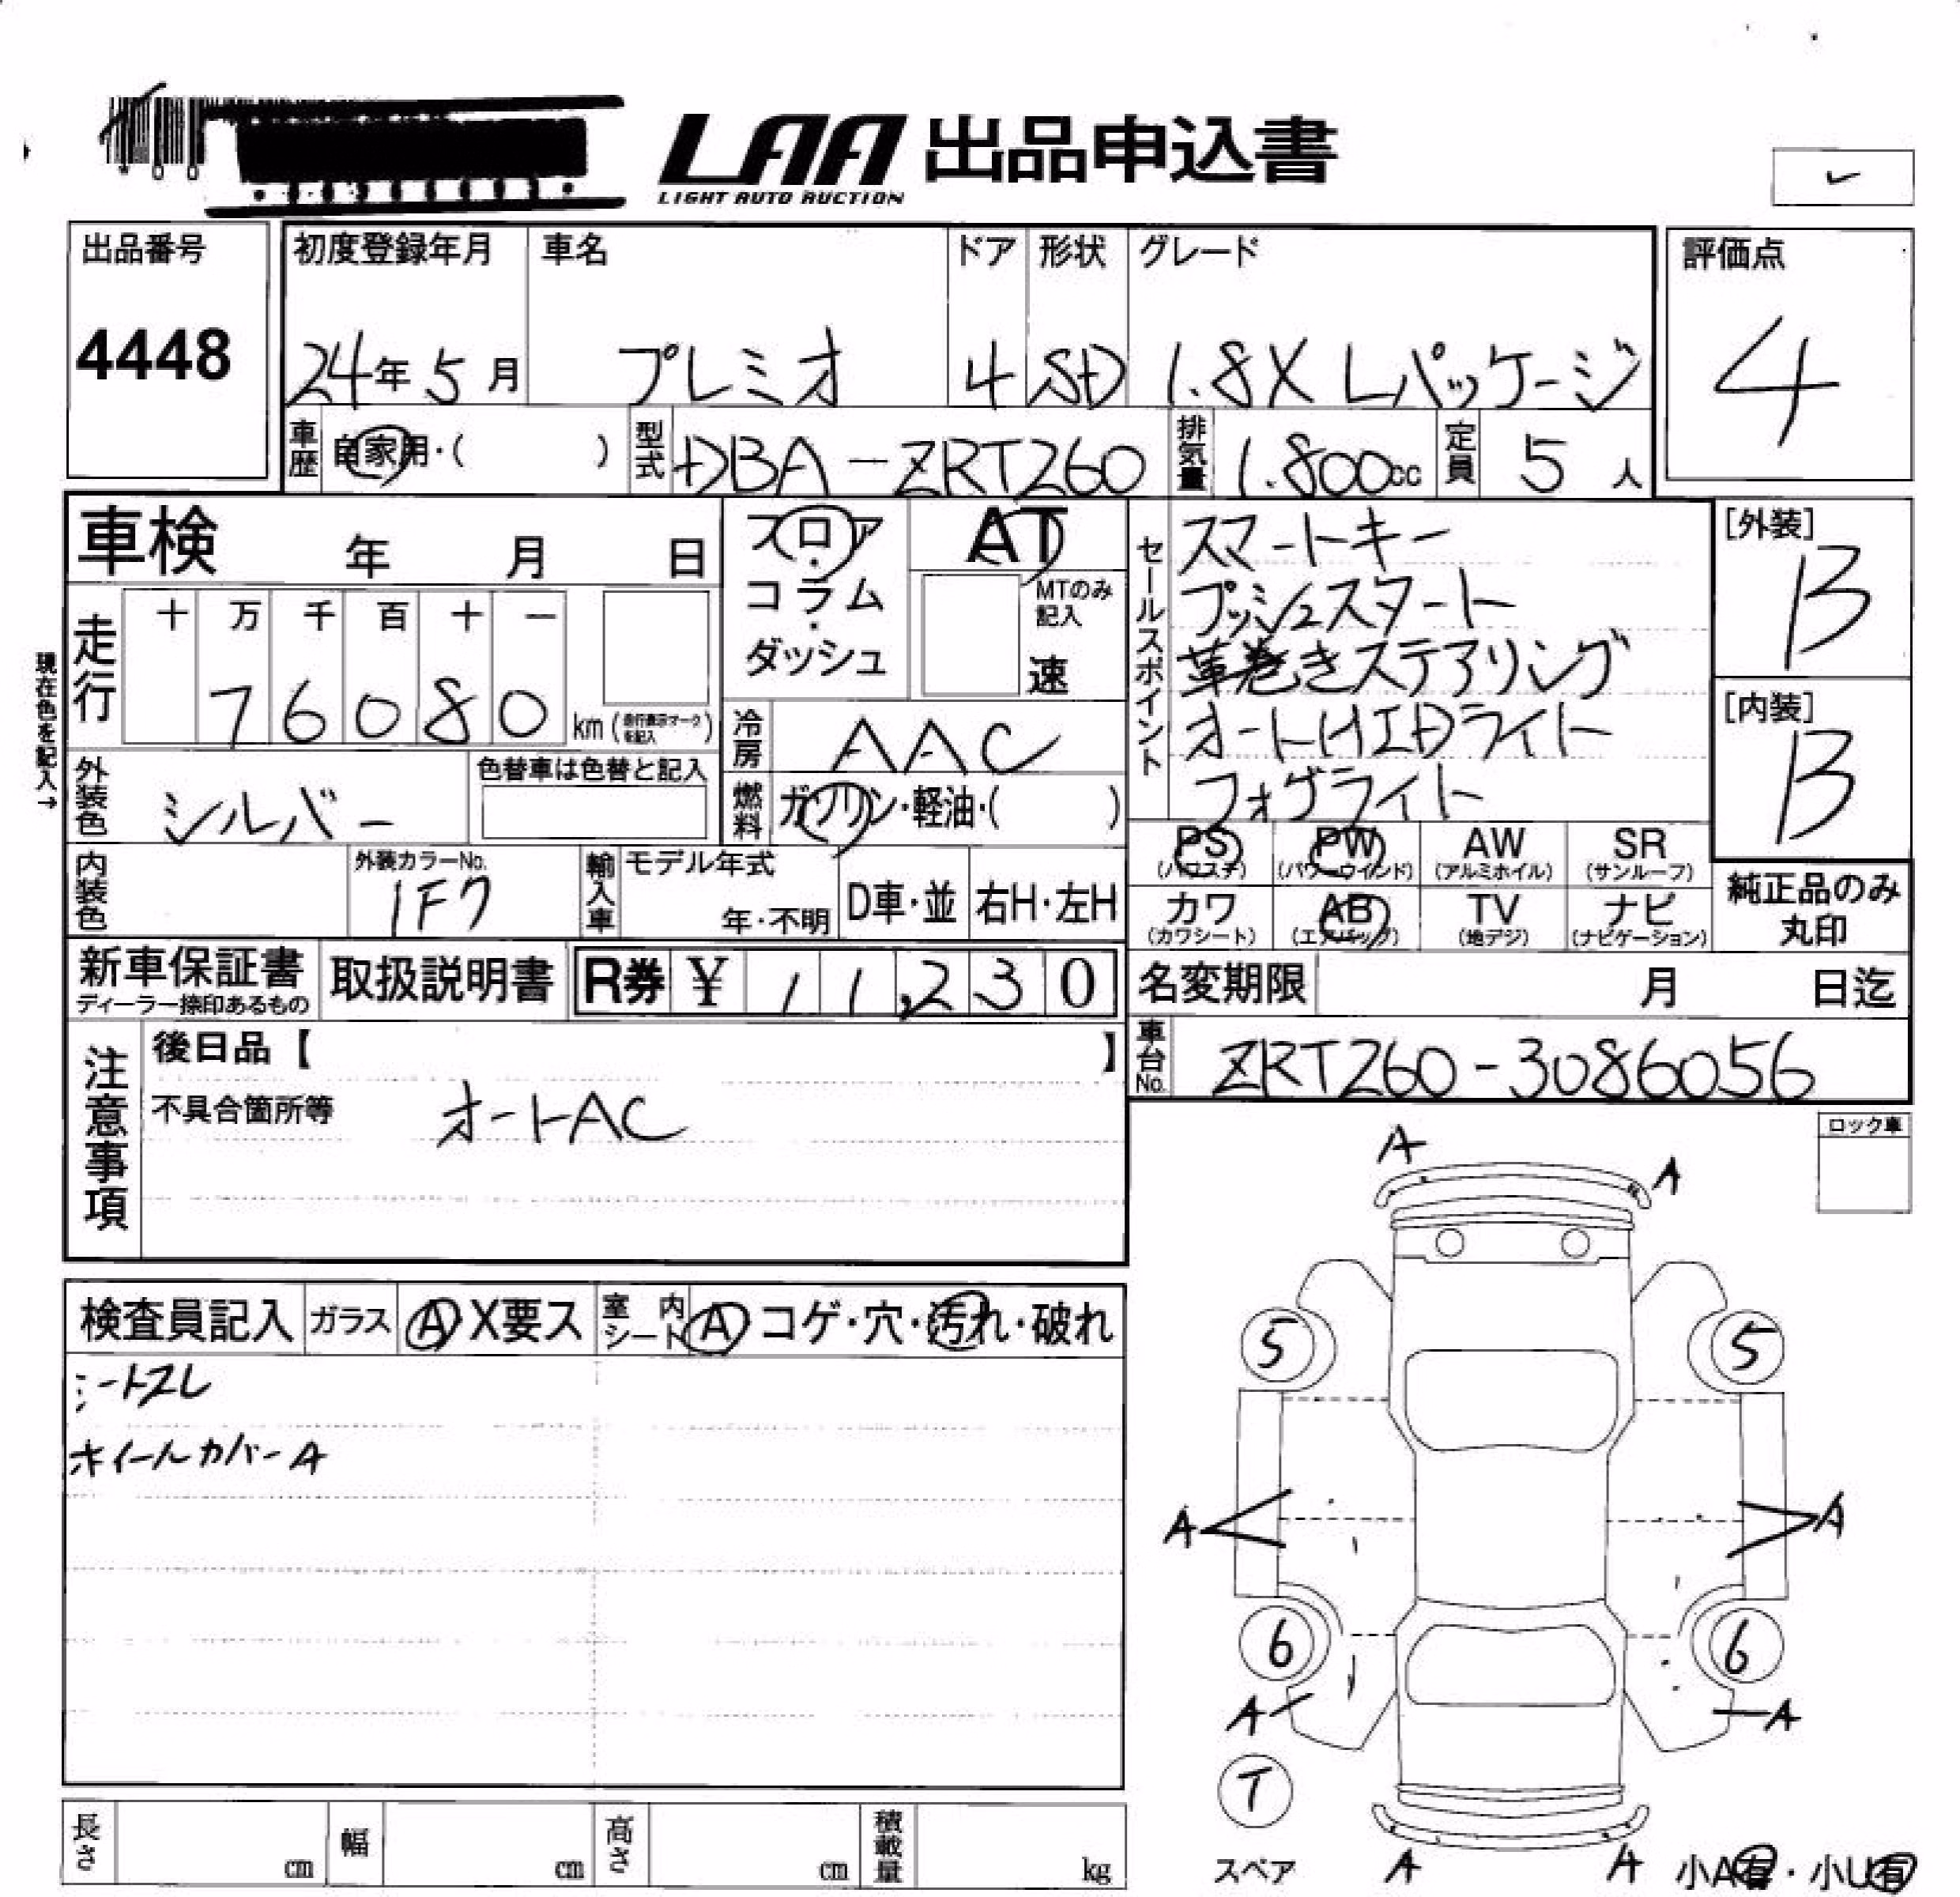 LAA 出品申込書
LIGHT AUTO AUCTION
出品番号
4448
初度登録年月
24年5月
車名
プレミオ
ドア
4
形状
SD
グレード
1.8X Lパッケージ
評価点
4
車歴
自家用・( )
型式
DBA-ZRT260
排気量
1.800cc
定員
5人
車検 年 月 日
フロア・コラム・ダッシュ
AT
MTのみ記入
速
セールスポイント
スマートキー
プッシュスタート
革巻きステアリング
オートHIDライト
フォグライト
[外装]
B
[内装]
B
現在色を記入→
走行
十 万 千 百 十 一
7 6 0 8 0 km (走行表示マークを記入)
冷房
AAC
外装色
シルバー
色替車は色替と記入
燃料
ガソリン・軽油・( )
内装色
外装カラーNo.
1F7
輸入車
モデル年式
年・不明
D車・並
右H・左H
PS
(パワステ)
PW
(パワーウインド)
AW
(アルミホイル)
SR
(サンルーフ)
カワ
(カワシート)
AB
(エアバッグ)
TV
(地デジ)
ナビ
(ナビゲーション)
純正品のみ
丸印
新車保証書
ディーラー捺印あるもの
取扱説明書
R券 ¥ 1 1,2 3 0
名変期限 月 日迄
車台No.
ZRT260-3086056
注意事項
後日品【 】
不具合箇所等 オートAC
ロック車
検査員記入
ガラス
A X要ス
室内シート
A コゲ・穴・汚れ・破れ
ホイールカバーA
A
A
5
5
A
A
6
6
A
A
T
スペア
A
A
小A有・小U有
長さ cm
幅 cm
高さ cm
積載量 kg